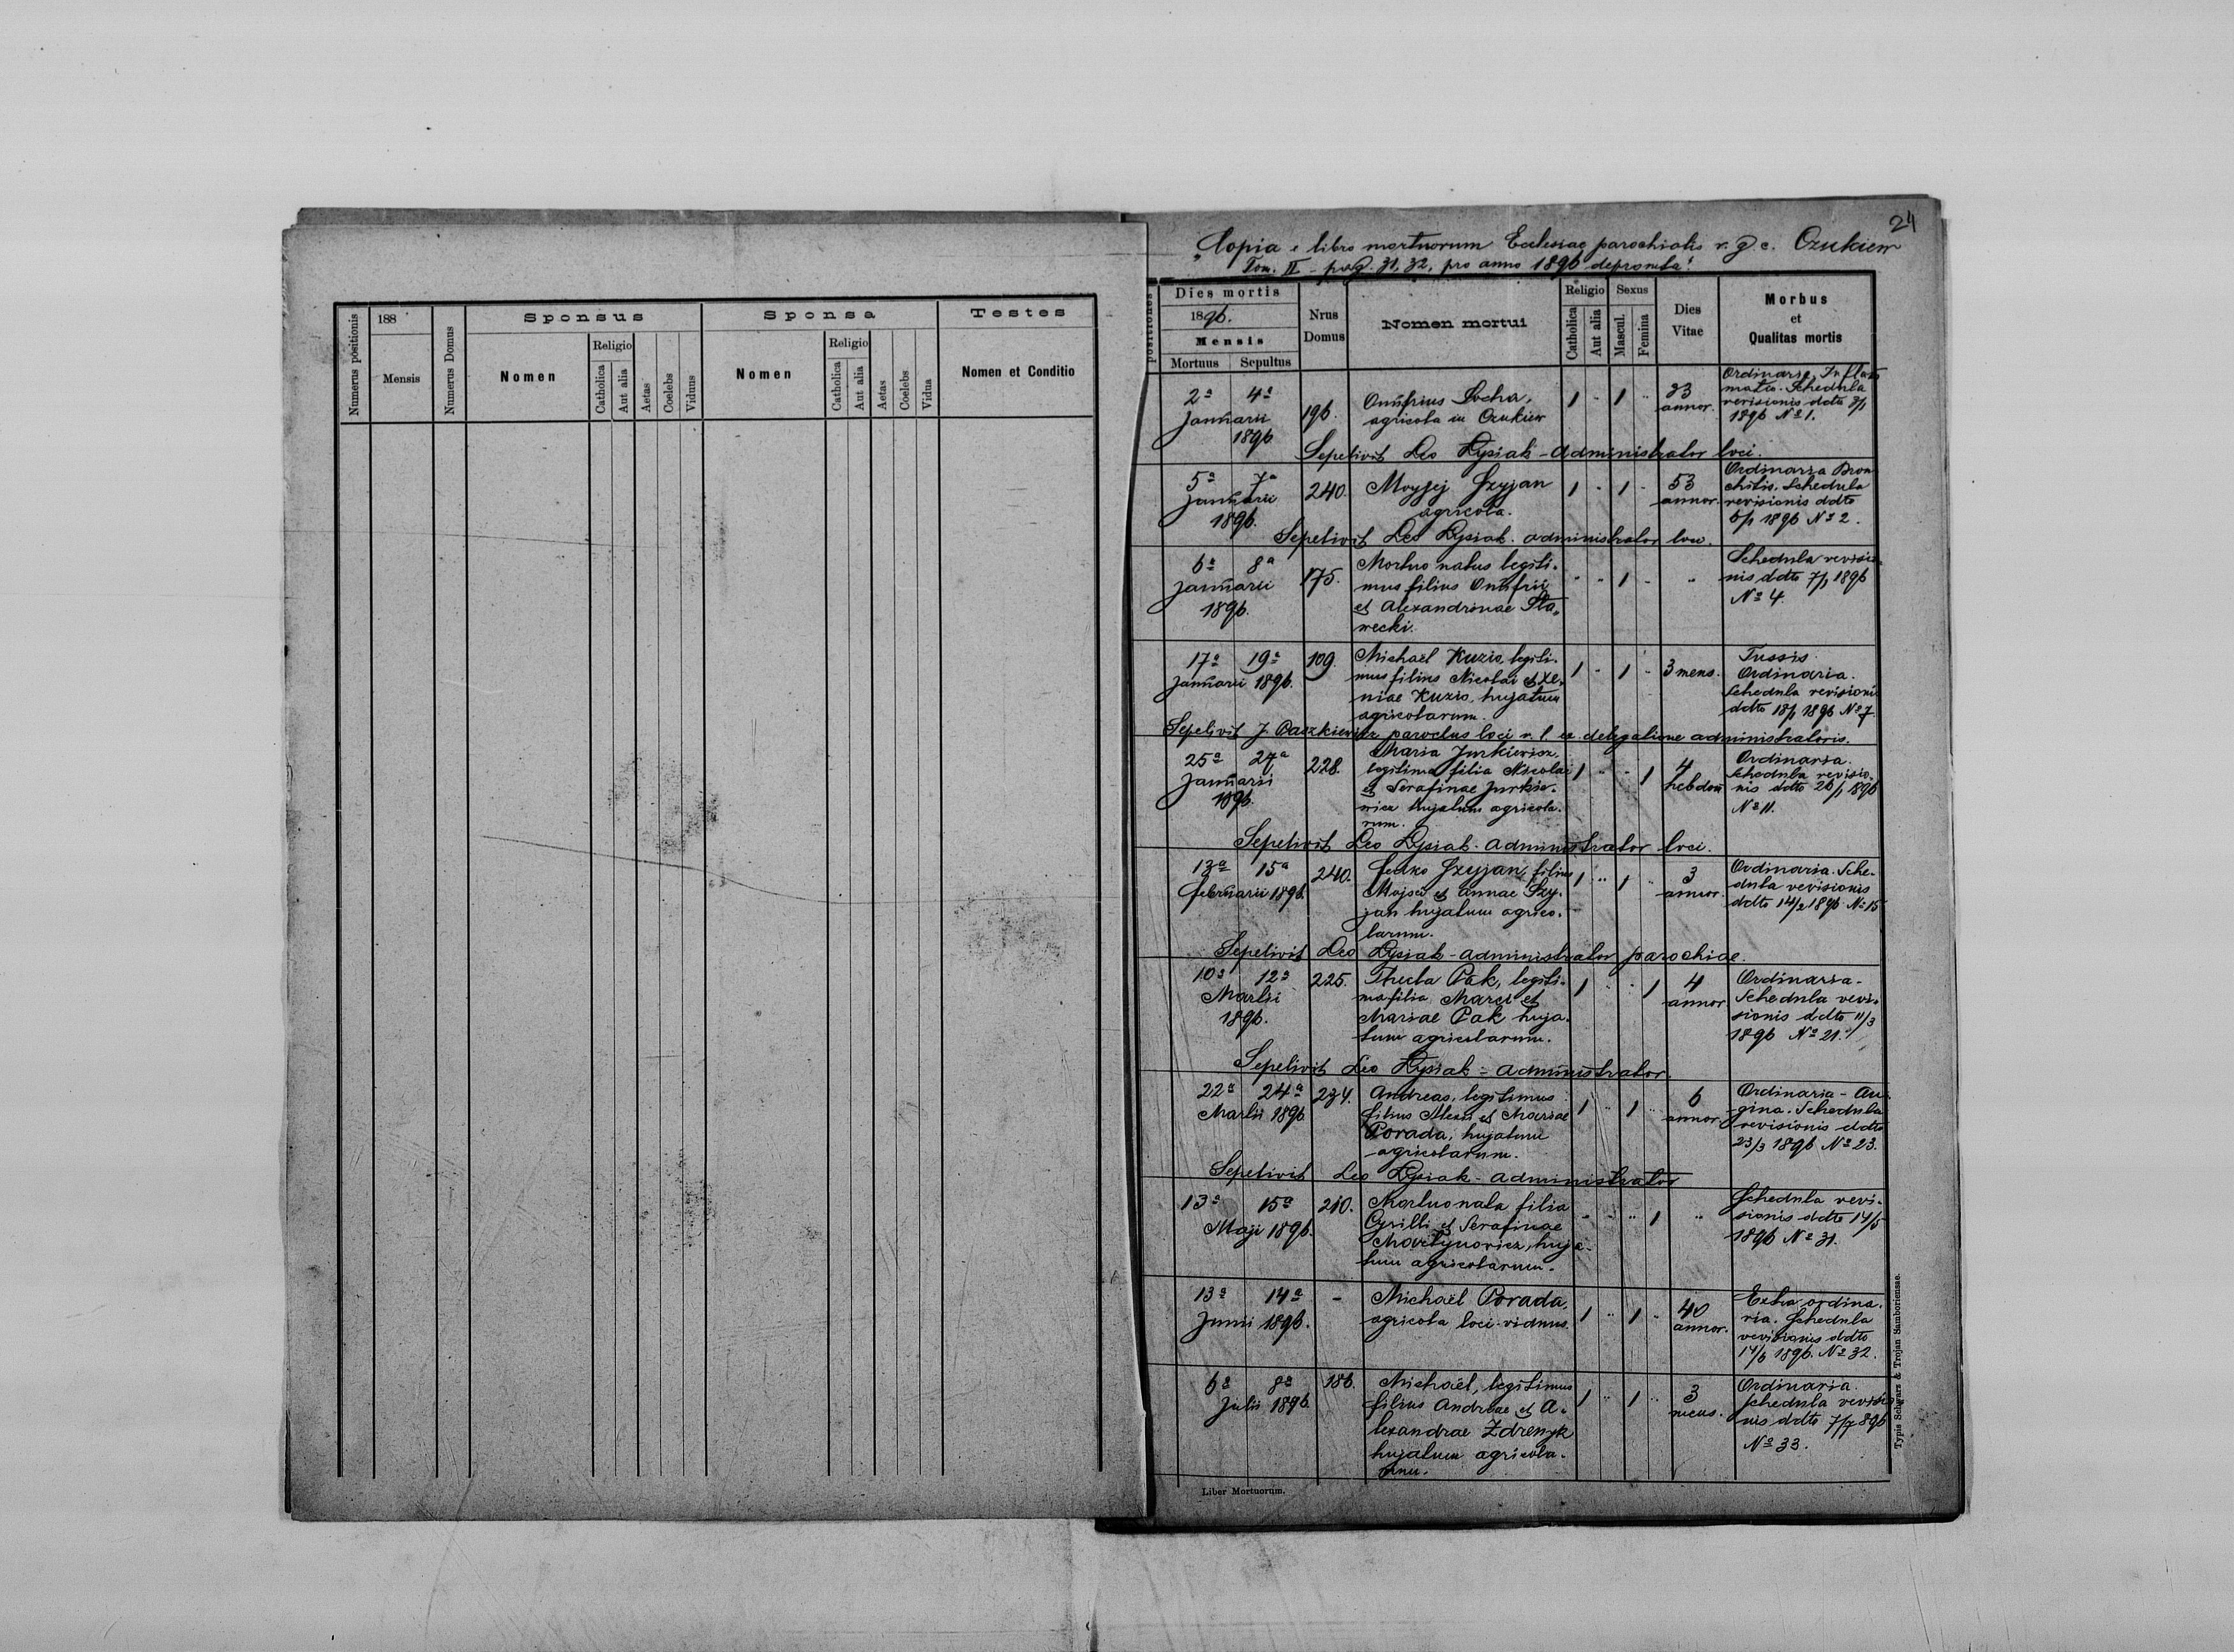 Numerus positionis
188
Mensis
Numerus Domus
Sponsus
Nomen
Religio
Catholica
Aut alia
Aetas
Coelebs
Viduus
Sponsa
Nomen
Religio
Catholica
Aut alia
Aetas
Coelebs
Vidua
Testes
Nomen et Conditio
24
"Copia e libro mortuorum Ecclesiae parochialis r. g. c. Czukiew
Tom. II - pag. 31, 32, pro anno 1896 deprompta."
positiones
Dies mortis
1896.
Mensis
Mortuus Sepultus
Nrus
Domus
Nomen mortui
Religio
Catholica
Aut alia
Sexus
Mascul.
Femina
Dies
Vitae
Morbus
et
Qualitas mortis
2a 4a
Januarii
1896
196.
Onufrius Socha,
agricola in Czukiew
1 " 1 "
annor.
Ordinaria, Inflam
matio. Schedula
revisionis ddto 3/1
1896 No 1.
Sepelivit Leo Łysiak - administrator loci.
5a 7a
Januarii
1896.
240.
Moysej Szyjan
agricola.
1 " 1 "
53
annor.
Ordinaria Bron
chitis. Schedula
revisionis ddto
6/1 1896 No 2.
Sepelivit Leo Łysiak. administrator loci.
6a 8a
Januarii
1896.
175.
Mortuo natus legiti-
mus filius Onufrii
et Alexandrinae Sta„
wecki.
" " 1 "
"
Schedula revisio
nis ddto 7/1 1896
No 4.
17a 19a
Januarii 1896.
109.
Michael Kuzio, legiti-
mus filius Nicolai et Xe-
niae Kuzio, hujatum
agricolarum.
1 " 1 "
3 mens.
Tussis
Ordinaria.
Schedula revisioni
ddto 18/1 1896 No 7
Sepelivit J. Paszkiewicz parochus loci r. l. ex delegatione administratoris.
25a 27a
Januarii
1896.
228.
Maria Jurkiewicz
legitima filia Nicolai
et Serafinae Jurkie-
wicz hujatum agricola-
rum.
1 " " 1
4
hebdom
Ordinaria.
Schedula revisio-
nis ddto 26/1 1896
No 11.
Sepelivit Leo Łysiak - administrator loci.
13a 15a
februarii 1896.
240.
Fedko Szyjan, filius
Mojsei et Annae Szy-
jan hujatum agrico-
larum.
1 " 1 "
3
annor.
Ordinaria. Sche-
dula revisionis
ddto 14/2 1896 No 15
Sepelivit Leo Łysiak - administrator parochiae.
10a 12a
Martii
1896.
225.
Thecla Pak, legiti-
ma filia Marci et
Mariae Pak huja-
tum agricolarum.
1 " " 1
4
annor
Ordinaria -
Schedula revi-
sionis ddto 11/3
1896 No 21.
Sepelivit Leo Łysiak = administrator
22a 24a
Martii 1896
234.
Andreas, legitimus
filius Alexii et Mariae
Porada, hujatum
agricolarum.
1 " 1 "
6
annor.
Ordinaria - An-
gina. Schedula
revisionis ddto
23/3 1896 No 23.
Sepelivit Leo Łysiak - administrator
13a 15a
Maji 1896.
210.
Mortuo nata filia
Cyrilli et Serafinae
Martynowicz, huja-
tum agricolarum.
" " " 1
"
Schedula revi-
sionis ddto 14/5
1896 No 31.
13a 14a
Junii 1896.
-
Michaël Porada,
agricola loci - viduus.
1 " 1 "
40
annor.
Extra ordina-
ria. Schedula
revisionis ddto
14/6 1896. No 32.
6a 8a
Julii 1896
186.
Michaël, legitimus
filius Andreae et A-
lexandrae Zdrenyk
hujatum agricola-
rum.
1 " 1 "
3
mens.
Ordinaria.
Schedula revisio
nis ddto 7/7 896
No 33.
Liber Mortuorum.
Typis Schwarz & Trojan Samboriensae.